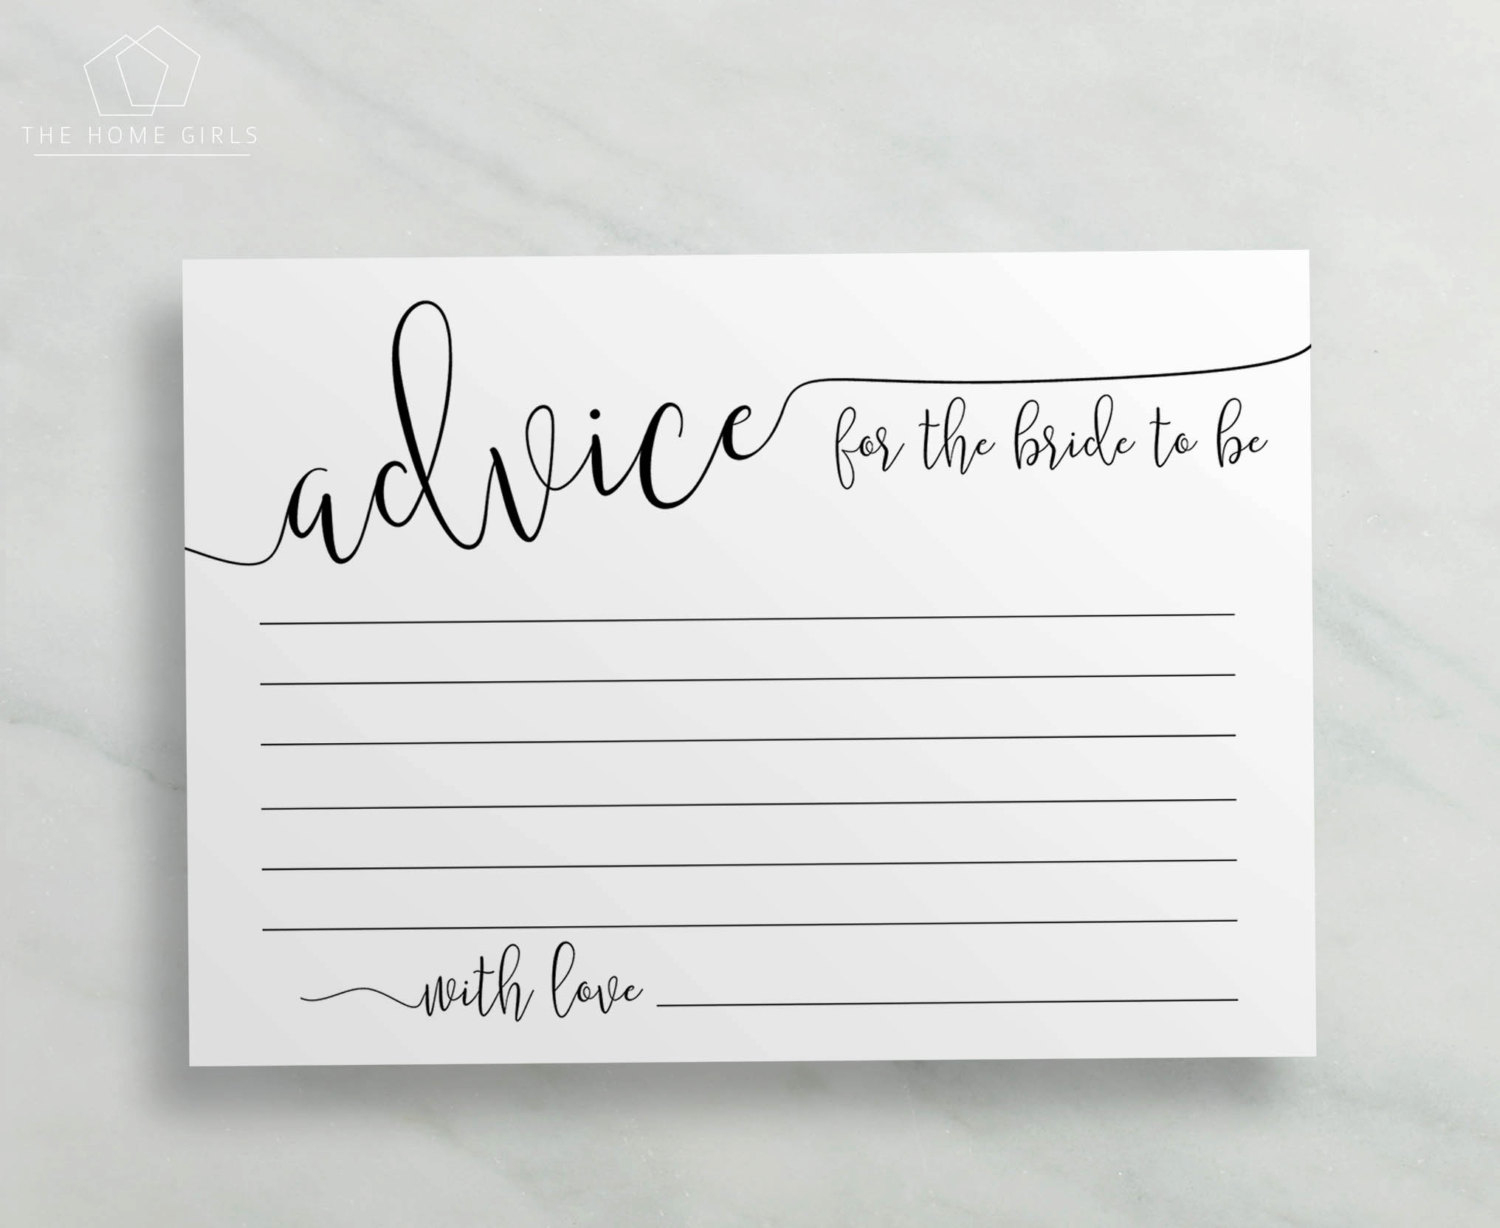 THE HOME GIRLS
advice
for the bride to be
with love